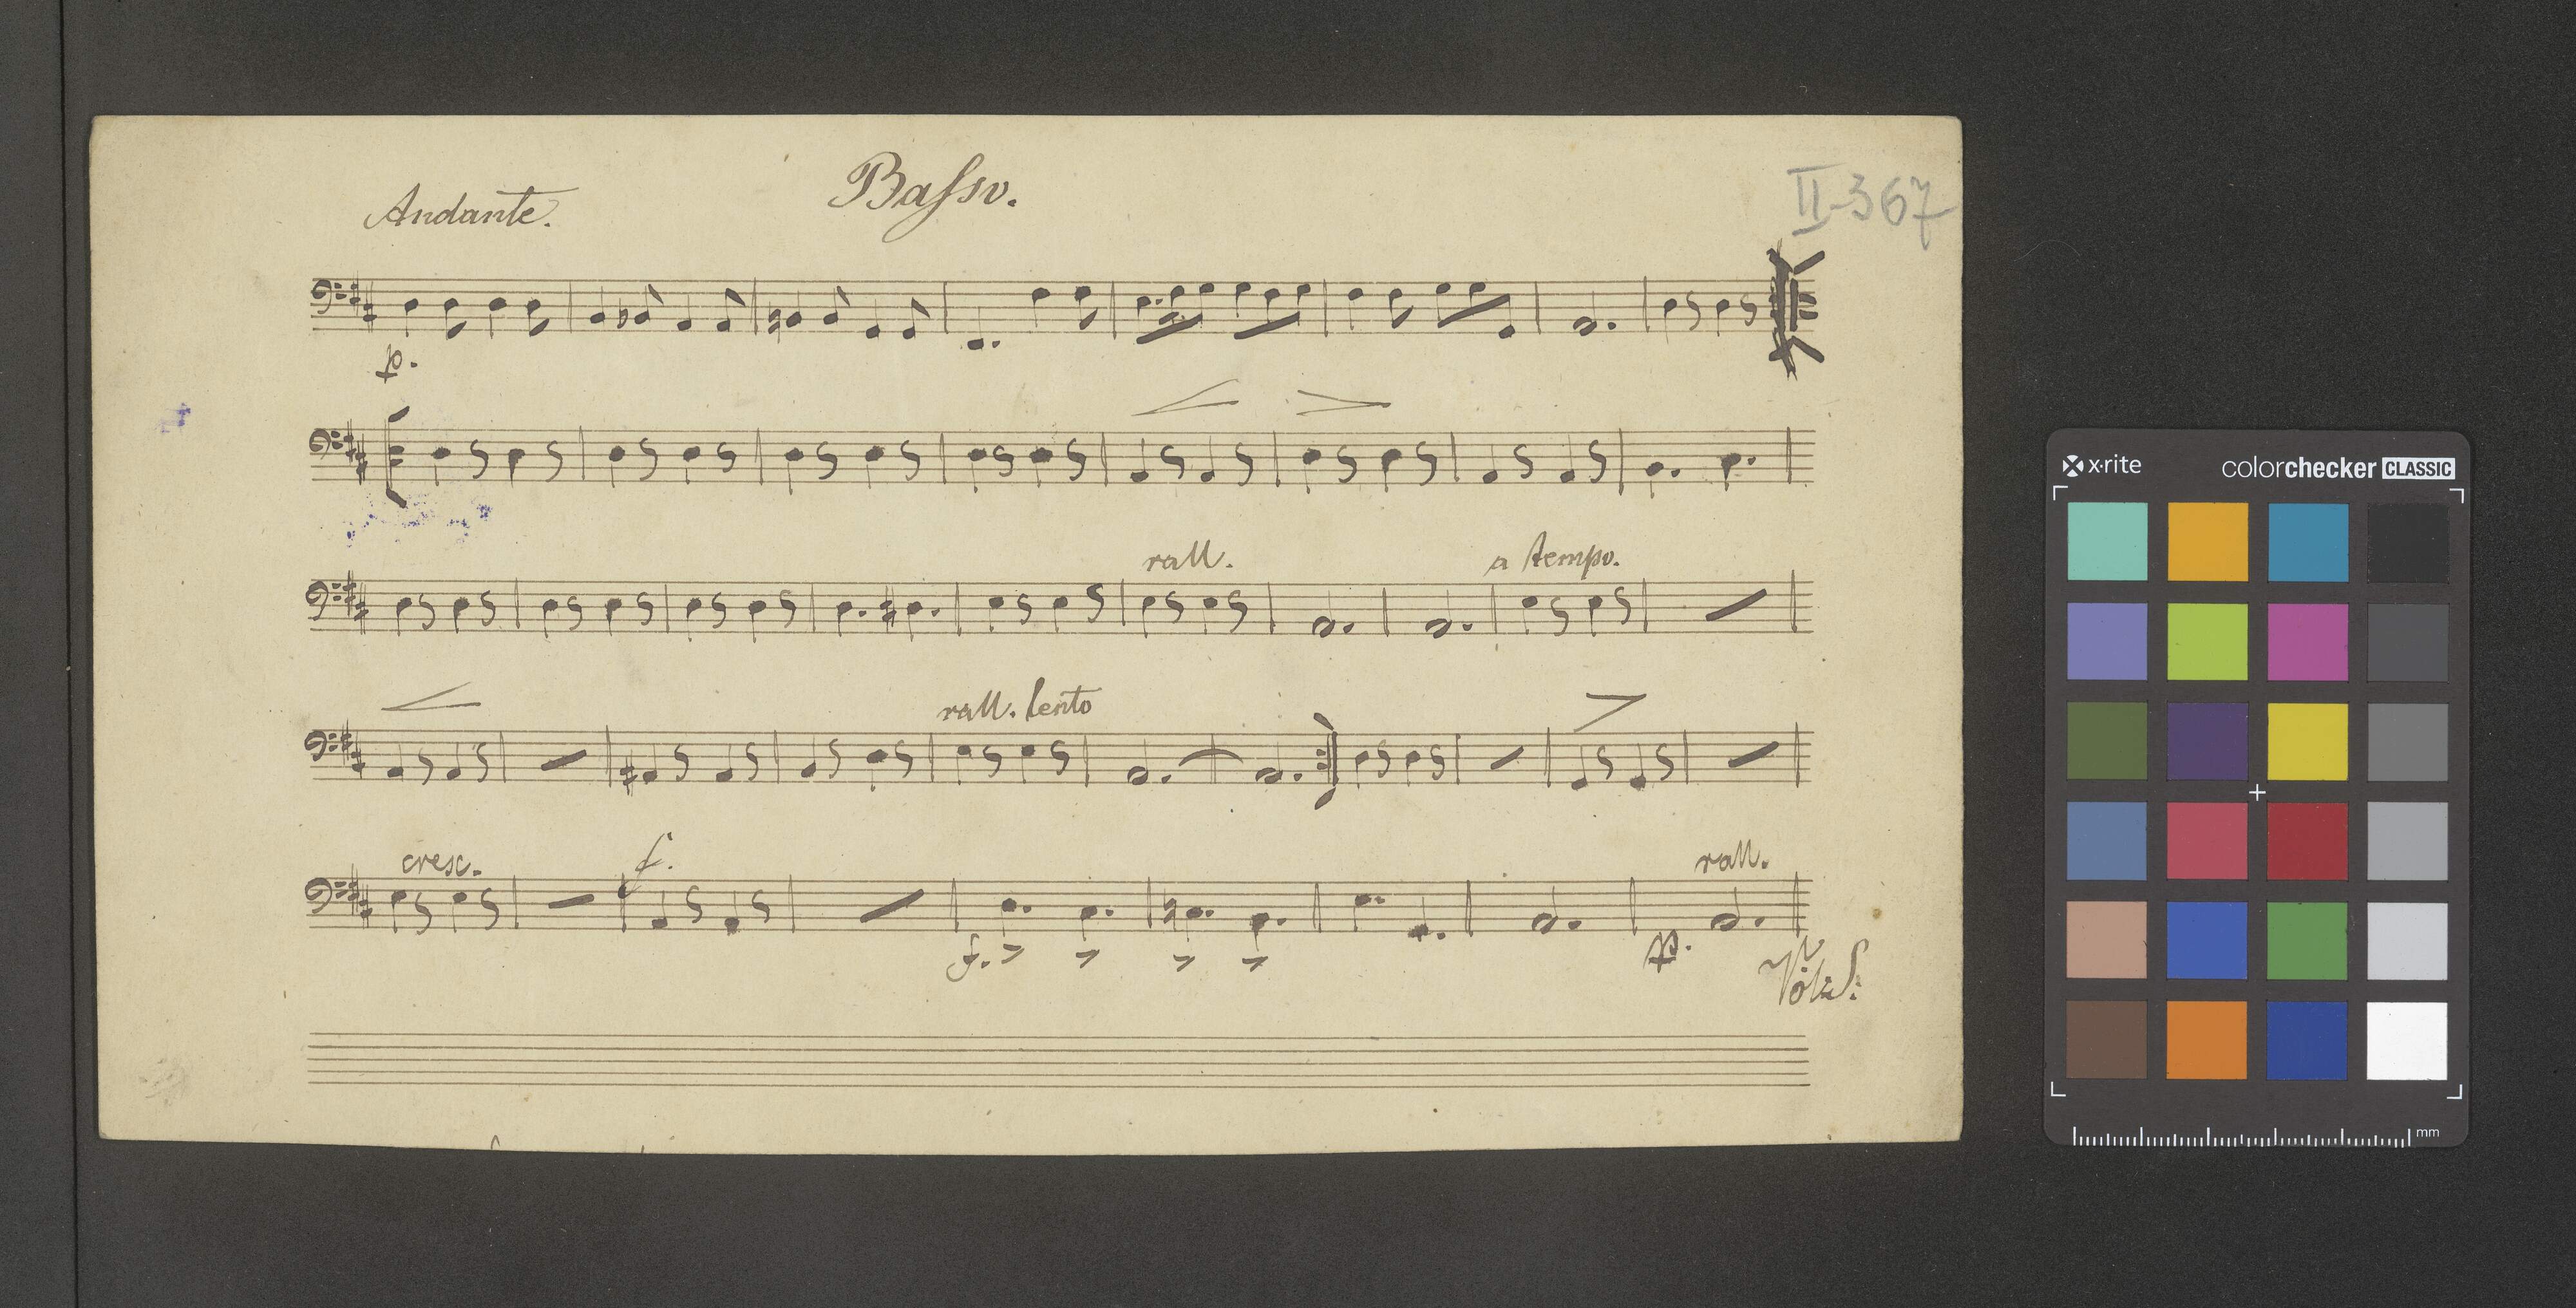 Basso.
Andante.
II-367
p.
rall.
a tempo.
rall. lento
cresc.
f.
rall.
f.
pp.
x-rite
colorchecker CLASSIC
mm